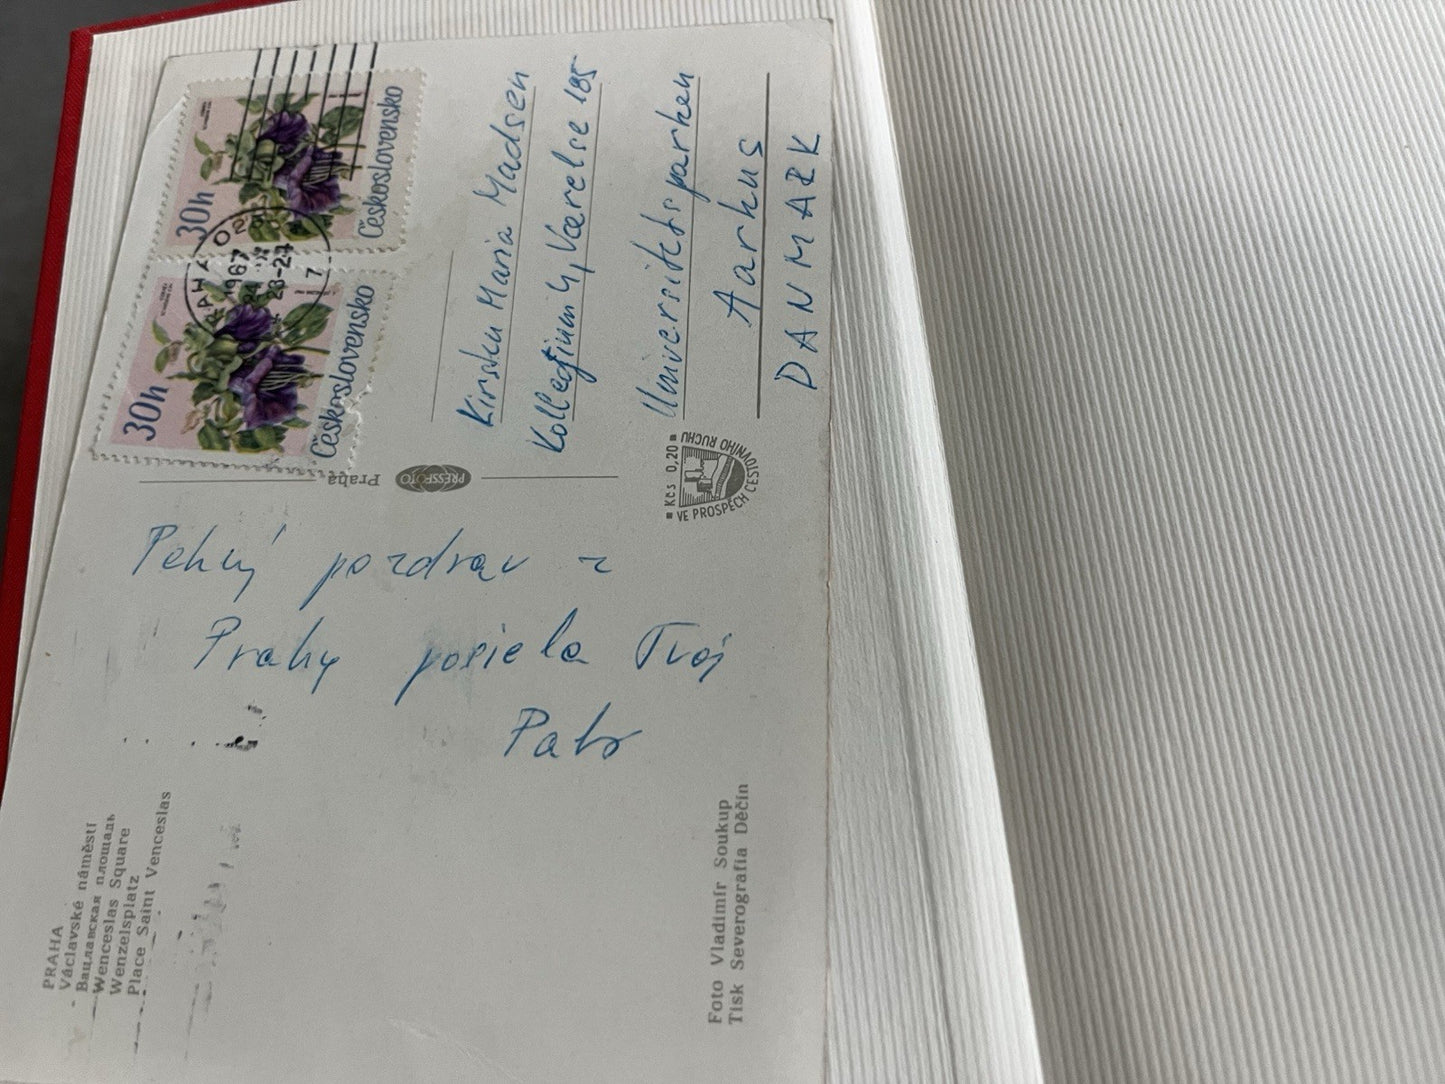 PRAHA
Václavské náměstí
Вацлавская площадь
Wenceslas Square
Wenzelsplatz
Place Saint Venceslas
Pekný pozdrav z
Prahy posiela Tvoj
Foto Vladimír Soukup
Tisk Severografia Děčín
Praha
PRESSFOTO
30h
Československo
30h
Československo
PRAHA 02
1967
23-24
7
Maria Madsen
Kollegium 4, Værelse 195
Universitetsparken
Aarhus
DANMARK
Kčs 0,20
VE PROSPĚCH CESTOVNÍHO RUCHU